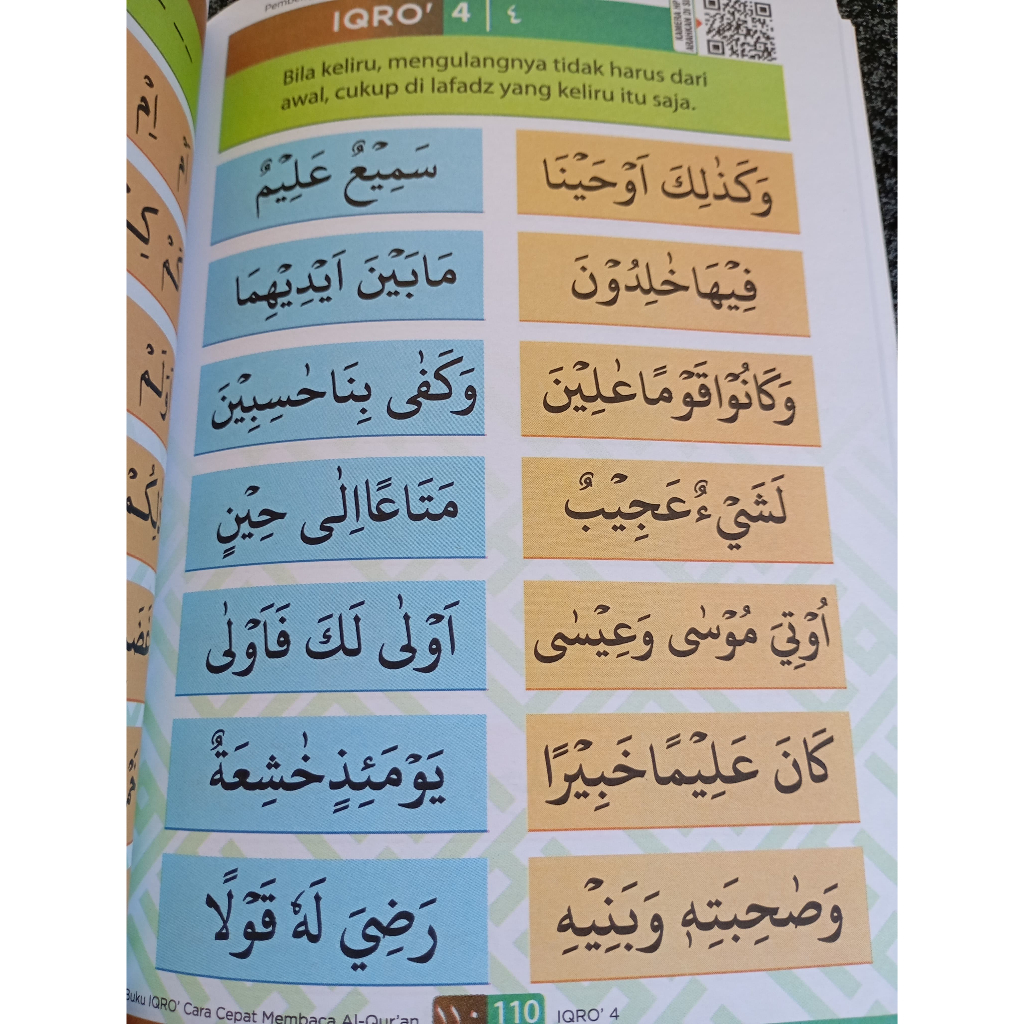 IQRO' 4 | ٤
KAMERA HP
ARAHKAN DI
Bila keliru, mengulangnya tidak harus dari
awal, cukup di lafadz yang keliru itu saja.
وَكَذٰلِكَ اَوْحَيْنَا
سَمِيْعٌ عَلِيْمٌ
فِيْهَا خٰلِدُوْنَ
مَا بَيْنَ اَيْدِيْهِمَا
وَكَانُوْا قَوْمًا عٰلِيْنَ
وَكَفٰى بِنَا حٰسِبِيْنَ
لَشَيْءٌ عَجِيْبٌ
مَتَاعًا اِلٰى حِيْنٍ
اُوْتِيَ مُوْسٰى وَعِيْسٰى
اَوْلٰى لَكَ فَاَوْلٰى
كَانَ عَلِيْمًا خَبِيْرًا
يَوْمَئِذٍ خٰشِعَةٌ
وَصٰحِبَتِهٖ وَبَنِيْهِ
رَضِيَ لَهٗ قَوْلًا
Buku IQRO' Cara Cepat Membaca Al-Qur'an ١١٠ 110 IQRO' 4